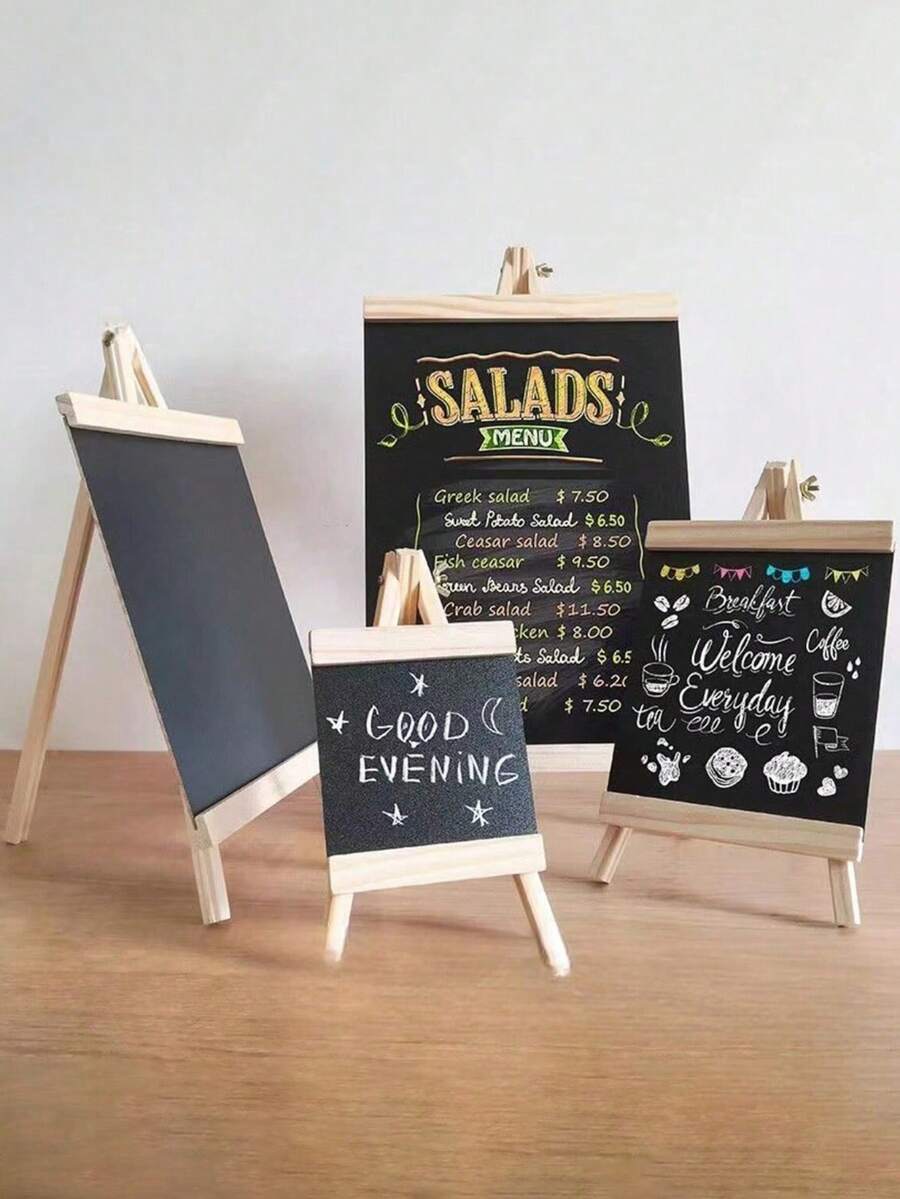 SALADS
MENU
Greek salad $ 7.50
Sweet Potato Salad $ 6.50
Ceasar salad $ 8.50
Fish ceasar $ 9.50
Beans Salad $ 6.50
Crab salad $11.50
$ 8.00
Salad
salad
$ 7.50
GOOD
EVENING
Breakfast
Coffee
Welcome
Everyday
tea